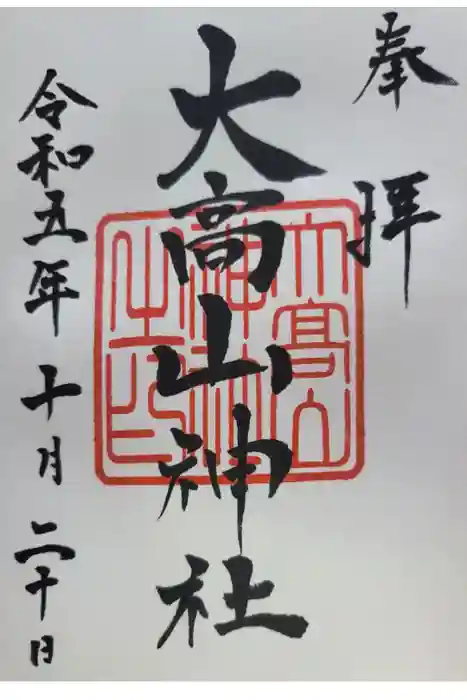 奉拝
大高山神社
大高山
神社
之印
令和五年十月二十日